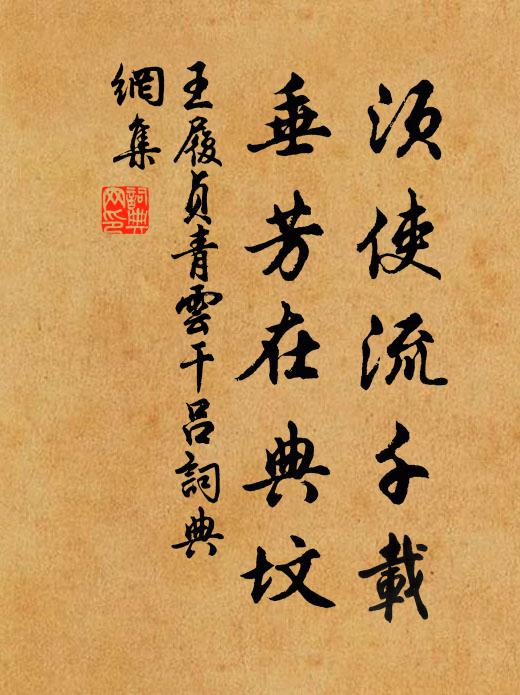 須使流千載
垂芳在典墳
王履貞青雲干呂詞典
網集
詞典
网印